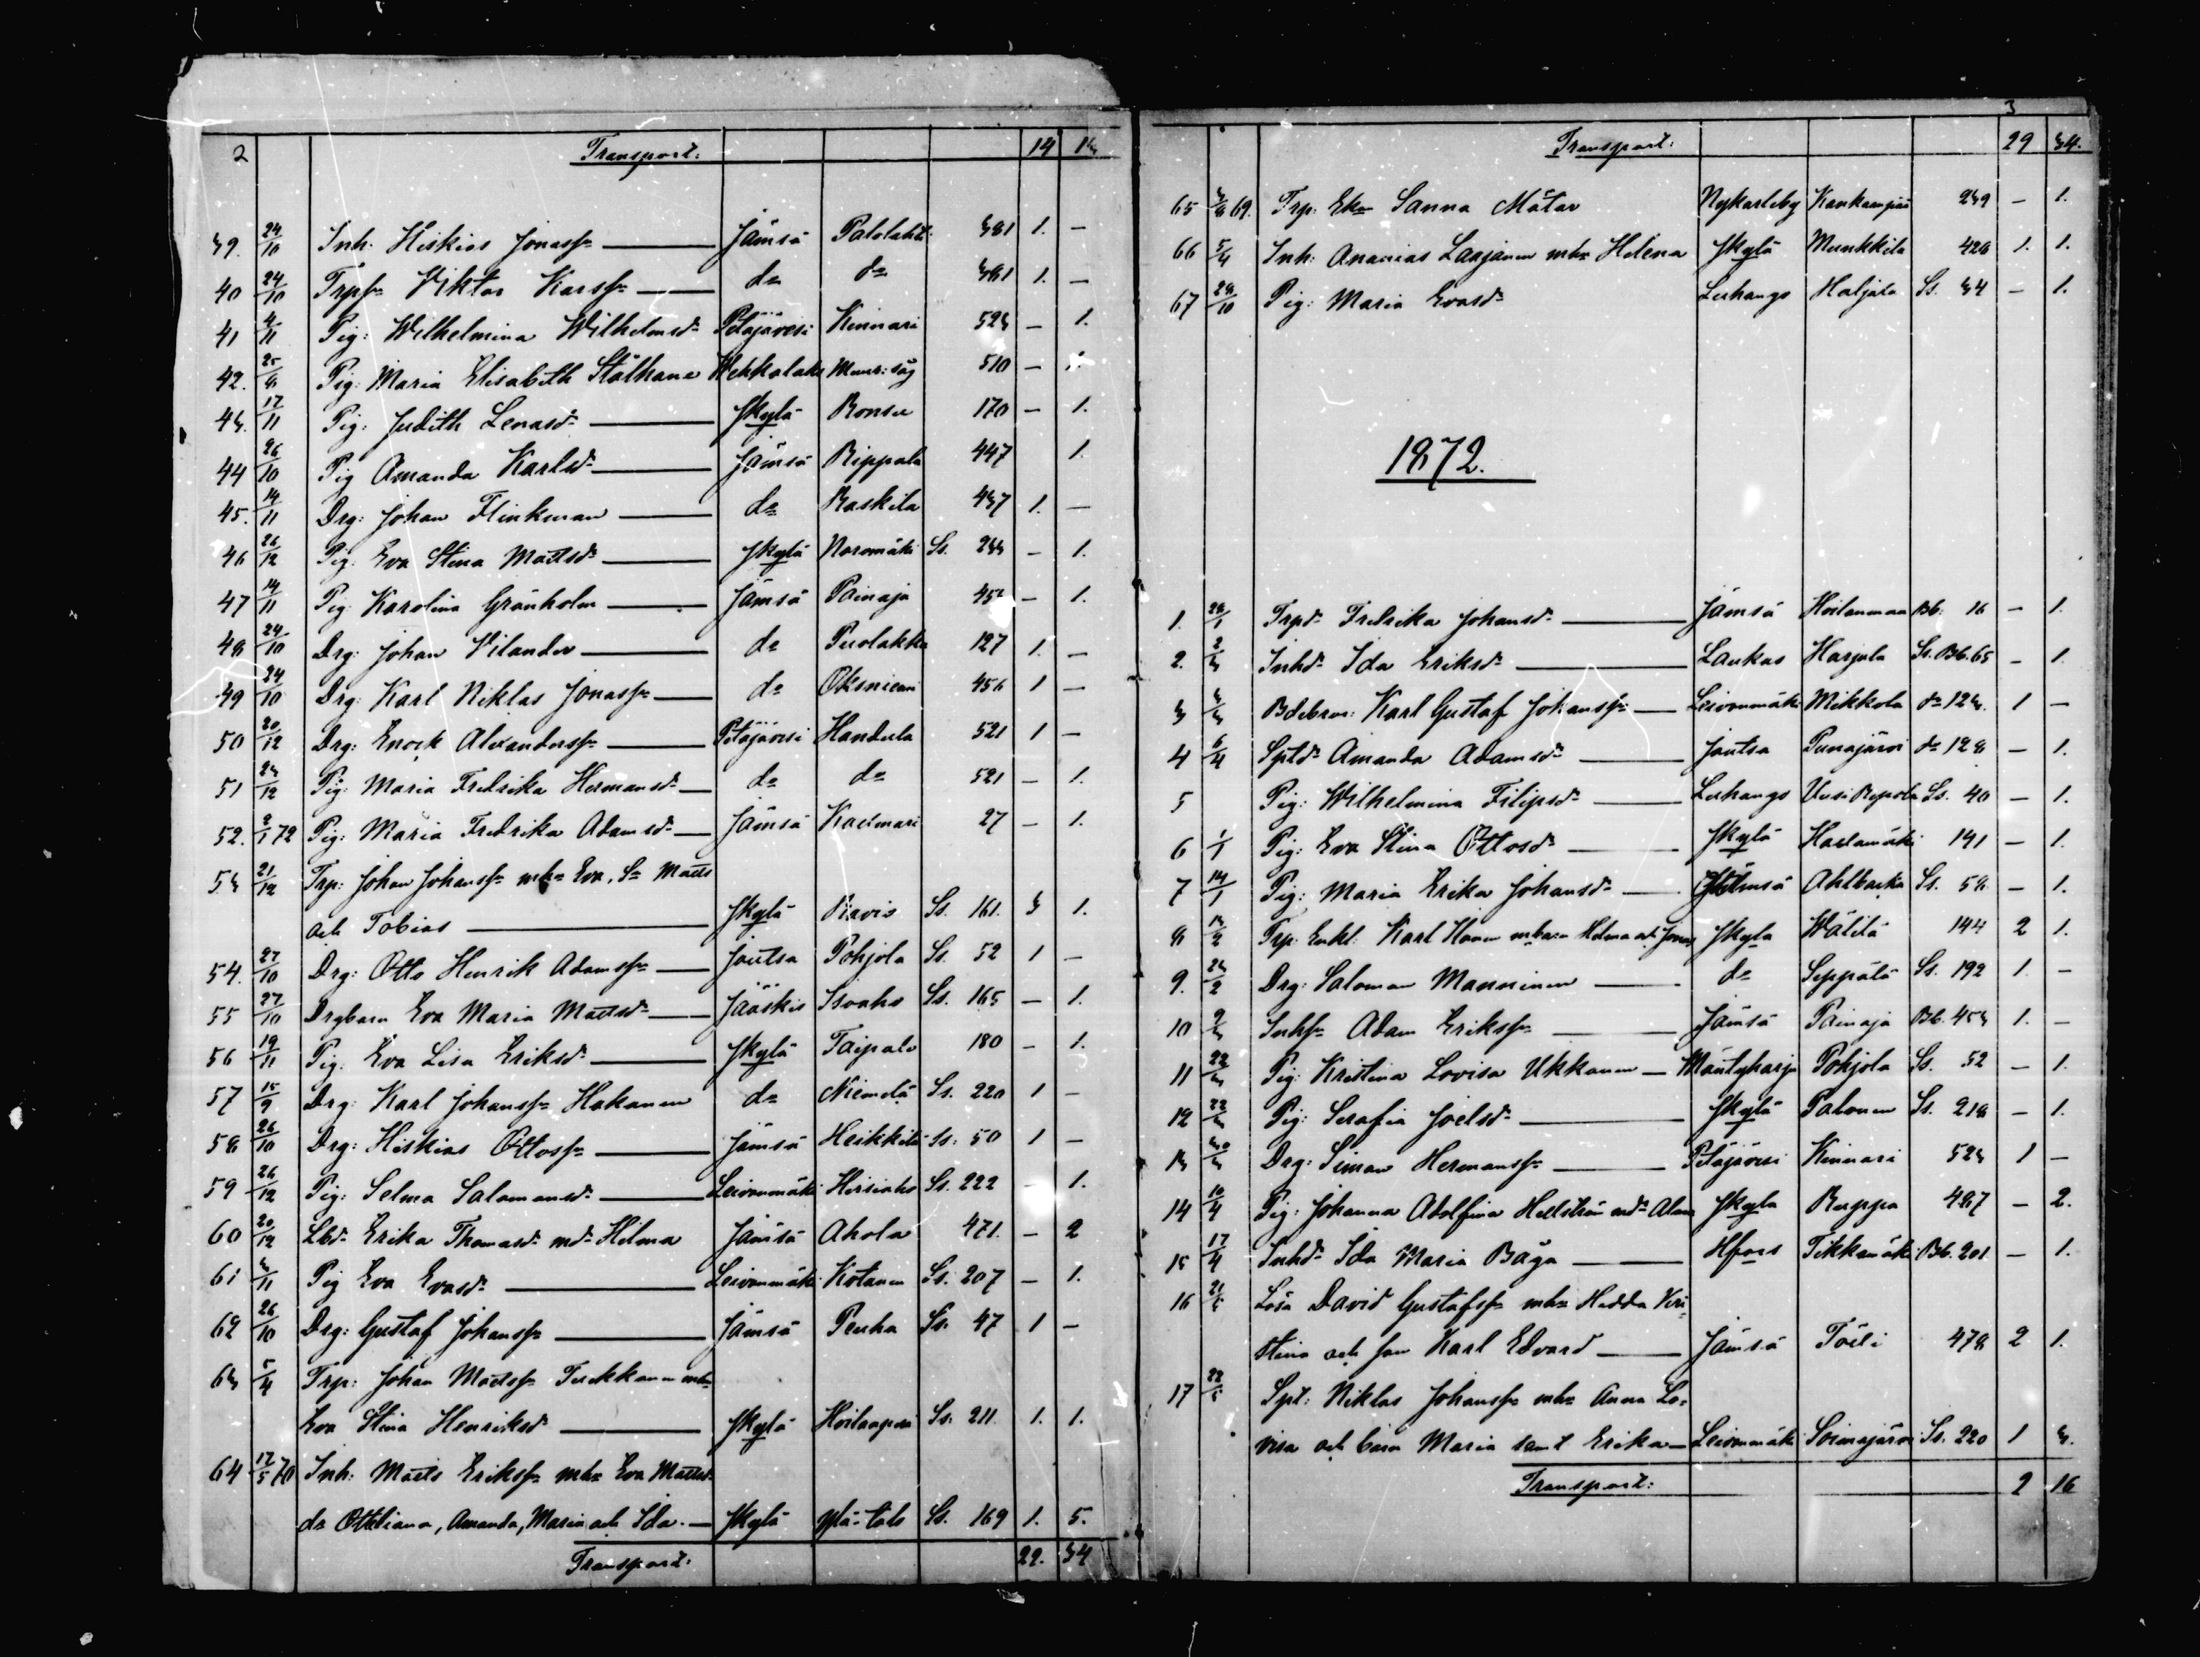 2 Transport: 14 13
39. 24/10 Inh. Hiskias Jonass: Jämsä Patalahti 381 1. —
40 24/10 Trps: Viktor Karss: do do 381 1. —
41 4/11 Pig: Wilhelmina Wilhelmsd: Petäjävesi Kinnari 523 — 1.
42. 25/8 Pig: Maria Elisabeth Stålhane Wehkalaks Muur: såg 510 — 1.
43. 17/11 Pig: Judith Lenasd: Jkylä Ronsu 170 — 1.
44 26/10 Pig Amanda Karlsd: Jämsä Rippala 447 1.
45. 14/11 Drg: Johan Flinkman do Raskila 437 1. —
46 26/12 Pig: Eva Stina Mattsd: Jkylä Noromäki Ss. 233 — 1.
47 14/11 Pig: Karolina Granholm Jämsä Painaja — 1.
48 24/10 Drg: Johan Vilander do Puolakka 127 1. —
49 24/10 Drg: Karl Niklas Jonass: do Oksniemi 456 1 —
50 20/12 Drg: Enock Alexanderss: Petäjävesi Handula 521 1 —
51 23/12 Pig: Maria Fredrika Hermansd: do do 521 — 1.
52. 2/1 72 Pig: Maria Fredrika Adamsd: Jämsä Kaelmari 27 — 1.
53 21/12 Trp: Johan Johanss: mhu Eva, Sr Matts
och Tobias Jkylä Ravio Ss. 161. 3 1.
54. 27/10 Drg: Otto Henrik Adamss: Joutsa Pohjola Ss. 52 1 —
55 27/10 Drgbarn Eva Maria Mattsd: Jääskis Isoaho Ss. 165 — 1.
56 19/11 Pig: Eva Lisa Eriksd: Jkylä Taipale 180 — 1.
57 15/9 Drg: Karl Johanss: Hakanen do Niemelä Ss. 220 1 —
58 26/10 Drg: Hiskias Ottoss: Jämsä Heikkilä Ss. 50 1 —
59 26/12 Pig: Selma Salomonsd: Leivonmäki Hirsiaho Ss. 222 — 1.
60 20/12 Lbd: Erika Thomasd: md: Hilma Jämsä Ahola 471. — 2
61 3/11 Pig Eva Evasd: Leivonmäki Kotanen Ss. 207 — 1.
62 26/10 Drg: Gustaf Johanss: Jämsä Penha Ss. 47 1 —
63 5/4 Trp: Johan Matss: mhu
Eva Stina Henriksd Jkylä Ss. 211. 1. 1.
64 17/5 70 Inh: Matts Erikss: mhu Eva Mattsd:
dr Ottiliana, Amanda, Maria och Ida. Jkylä Ylä-talo Ss. 169 1. 5.
Transport: 29. 34
3
Transport: 29 34.
65 3/8 69. Trp: Eka Sanna Måtar Nykarleby Kankaanpää 239 — 1.
66 5/4 Inh: Ananias Laajanen mhu Helena Jkylä Munkkila 428 1. 1.
67 28/10 Pig: Maria Evasd: Luhango Haljala Ss. 34 — 1.
1872.
1. 28/1 Trpd: Fredrika Johansd: Jämsä Hoilanmaa Bb. 16 — 1.
2. 2/3 Inhd: Ida Eriksd: Laukas Harjula Ss. Bb. 65 — 1.
3 3/3 Karl Gustaf Johanss: Leivonmäki Mikkola do 123. 1 —
4 6/4 Spltd: Amanda Adamsd: Joutsa Punajärvi do 128 — 1.
5 Pig: Wilhelmina Filipsd: Luhango Uusi Repola Ss. 40 — 1.
6 1/1 Pig: Eva Stina Ottosd: Jkylä Haslamäki 141 — 1.
7 14/1 Pig: Maria Erika Johansd: Jämsä Ahlbacka Ss. 58 — 1.
8 13/2 Trp. Enkl. Karl Honen mbarn Helma och Jonas Jkyla Wälilä 144 2 1.
9. 23/2 Drg: Salomon Manninen do Seppälä Ss. 192 1. —
10 9/3 Inhs: Adam Erikss: Jämsä Painaja Bb. 453 1. —
11 22/3 Pig: Kristina Lovisa Ukkonen Mäntyharju Pohjola Ss. 52 — 1.
12 22/3 Pig: Serafia Joelsd: Jkylä Palonen Ss. 218 — 1.
13 30/3 Drg: Simon Hermanss: Petäjävesi Kinnari 523 1 —
14 10/4 Pig: Johanna Adolfina Hellström md: Alma Jkyla Ruppa 487 — 2.
15 17/4 Inhd: Ida Maria Båga Hfors Tikkamäki Bb. 201 — 1.
16 21/5 Lösa David Gustafss: mhu Hedda Kri-
stina och son Karl Edvard Jämsä Töeli 478 2 1.
17 22/5 Spt: Niklas Johanss: mhu Anna Lo-
visa och barn Maria samt Erika Leivonmäki Soimajärvi Ss. 220 1 3.
Transport: 9 16